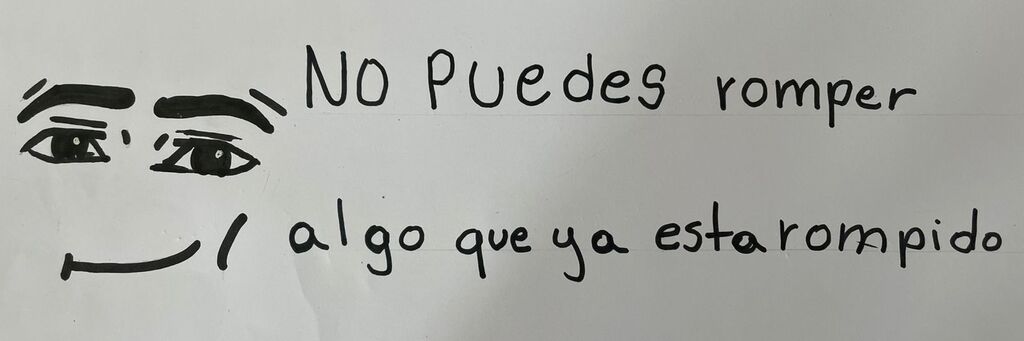 No Puedes romper
algo que ya esta rompido